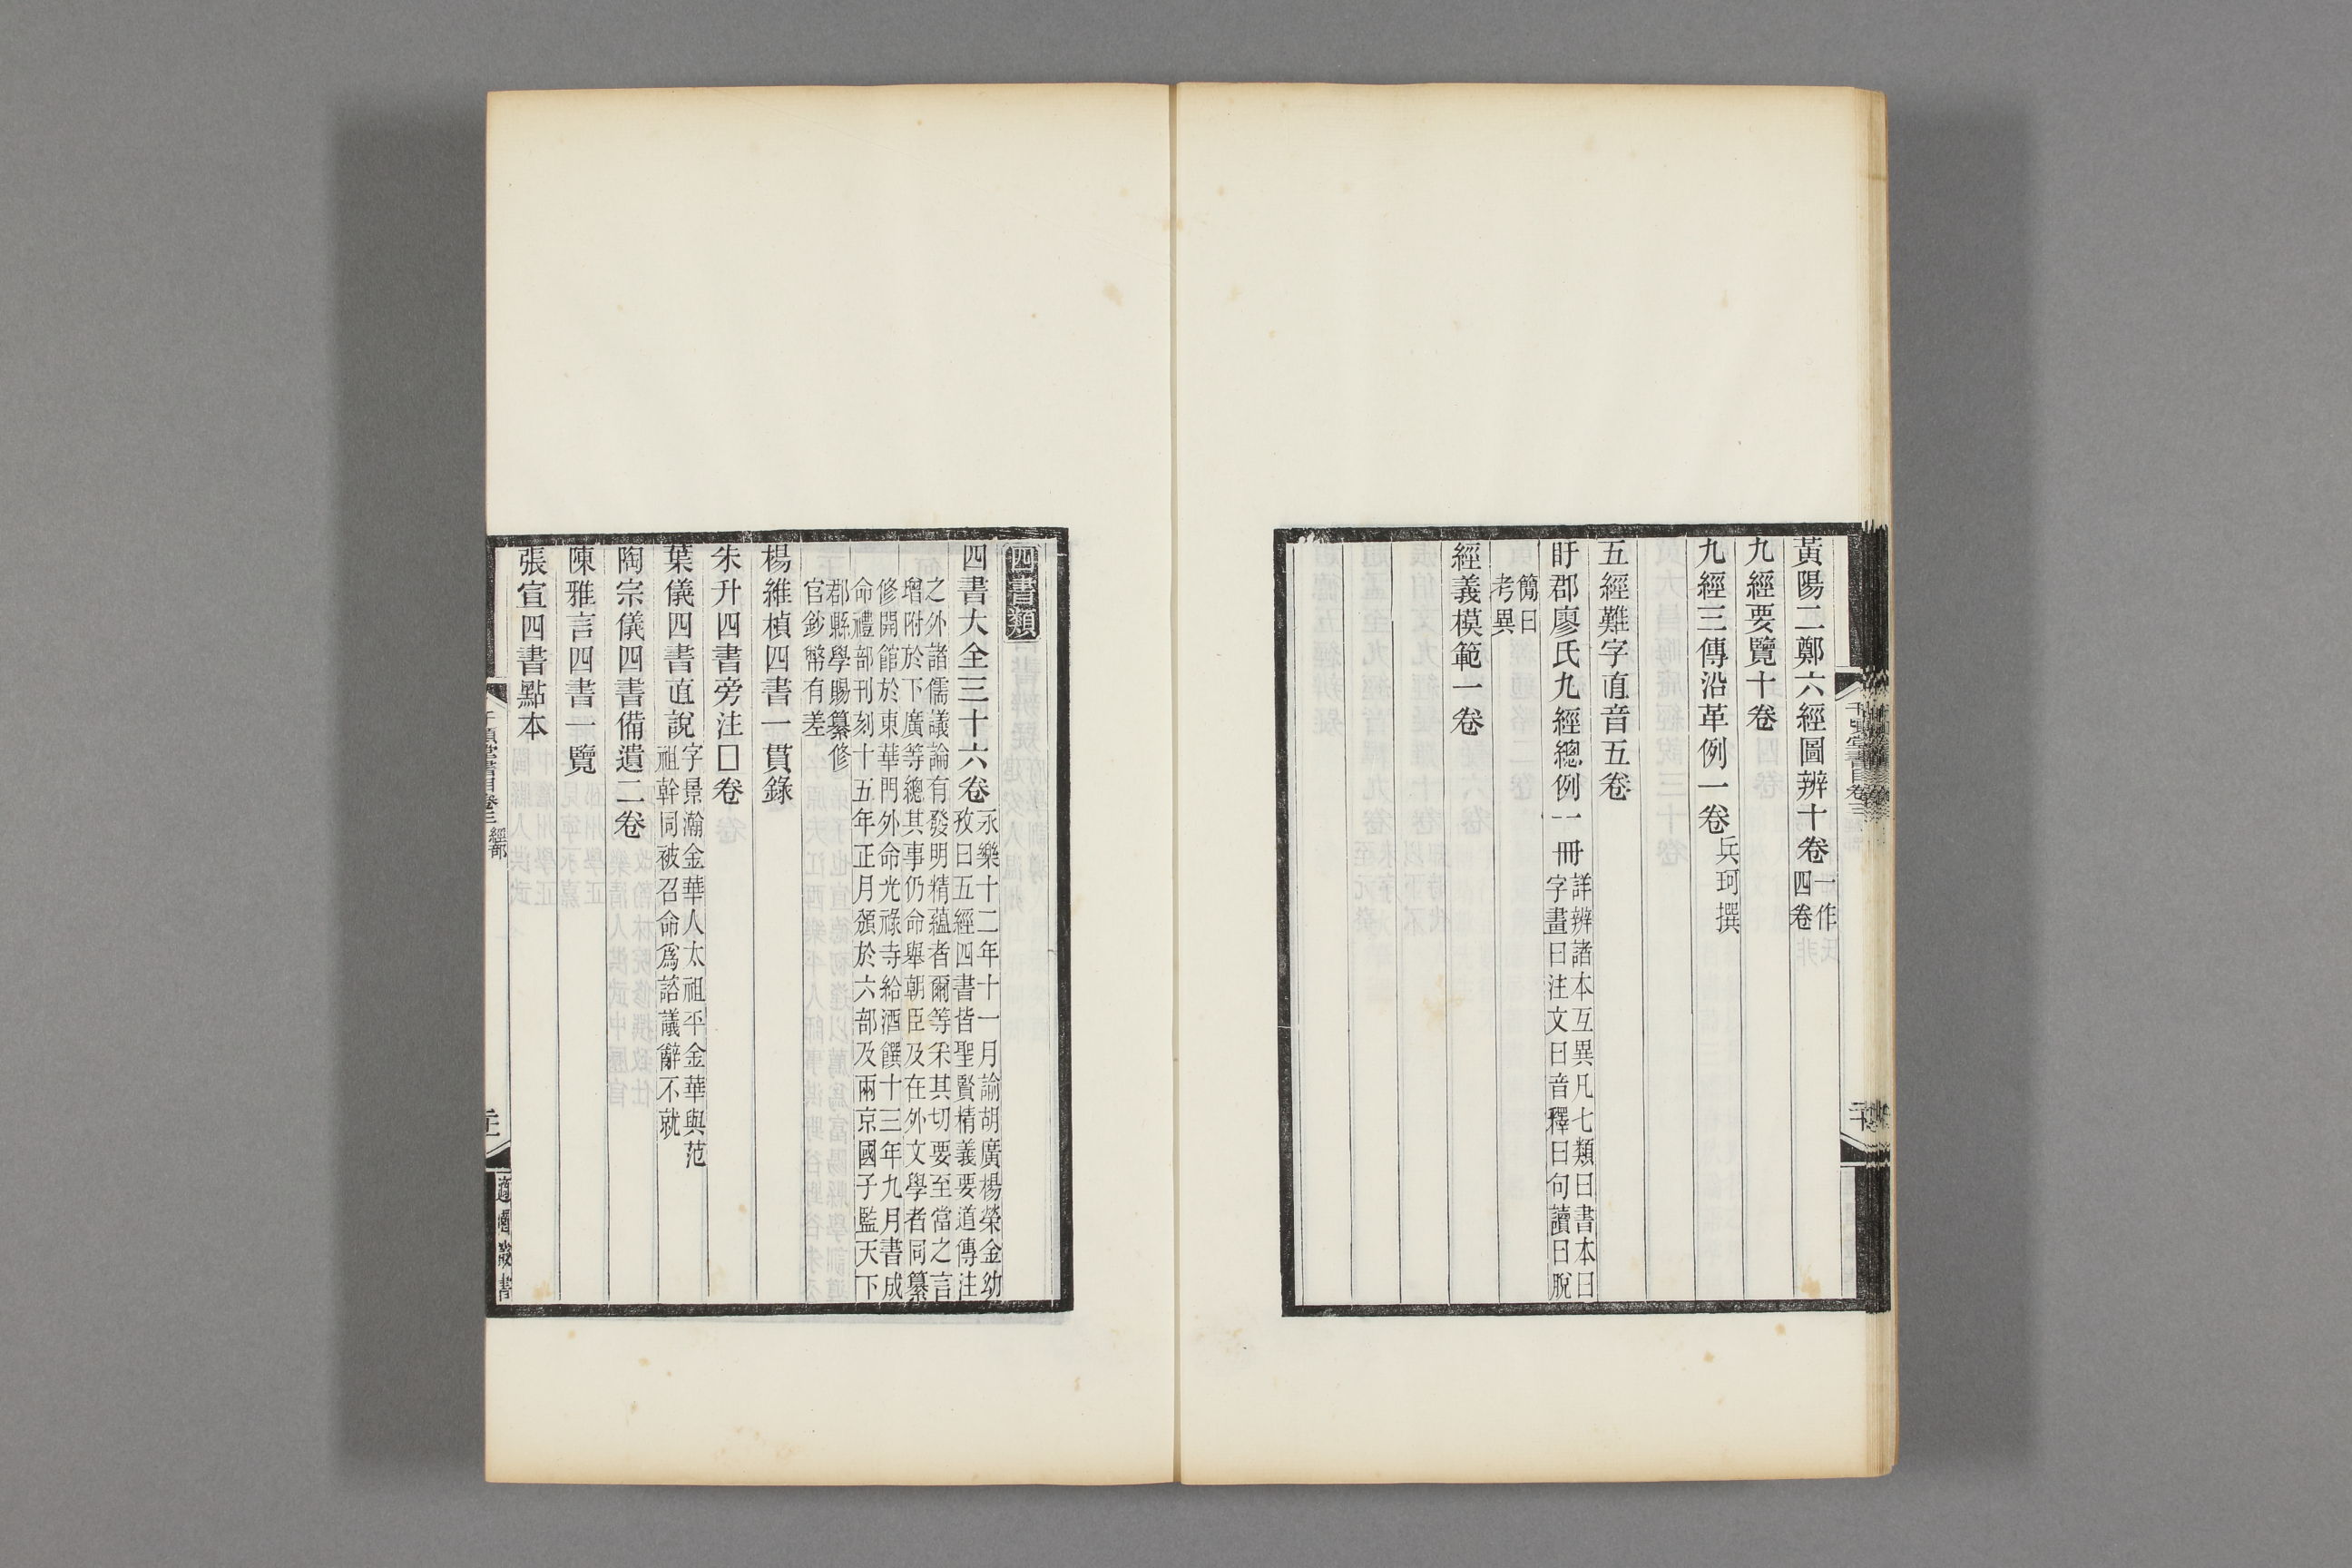 黃陽二鄭六經圖辨十卷一作四卷
九經要覽十卷
九經三傳沿革例一卷兵珂撰
五經難字直音五卷
盱郡廖氏九經總例一冊詳辨諸本互異凡七類曰書本曰
字畫曰注文曰音釋曰句讀曰脫
簡曰
考異
經義模範一卷
千頃堂書目卷三
四書類
四書大全三十六卷永樂十二年十一月諭胡廣楊榮金幼
孜曰五經四書皆聖賢精義要道傳注
之外諸儒議論有發明精蘊者爾等采其切要至當之言
增附於下廣等總其事仍命舉朝臣及在外文學者同纂
修開館於東華門外命光祿寺給酒饌十三年九月書成
命禮部刊刻十五年正月頒於六部及兩京國子監天下
郡縣學賜纂修
官鈔幣有差
楊維楨四書一貫錄
朱升四書旁注□卷
葉儀四書直說字景瀚金華人太祖平金華與范
祖幹同被召命爲諮議辭不就
陶宗儀四書備遺二卷
陳雅言四書一覽
張宣四書點本
千頃堂書目卷三 經部
適園叢書